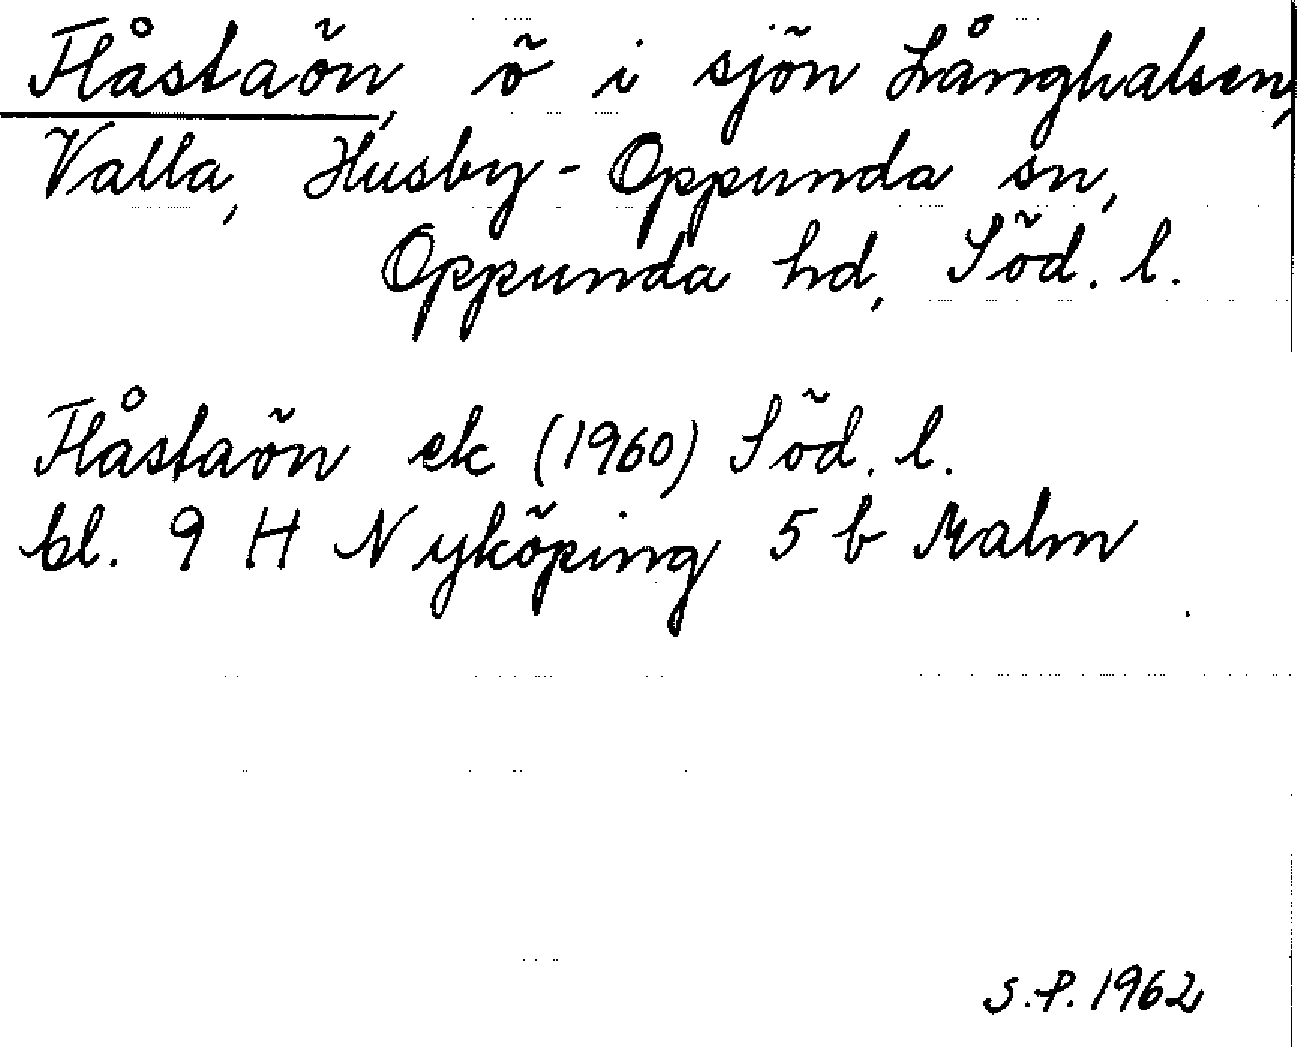 Flåstaön, ö i sjön Långhalsen,
Valla, Husby-Oppunda sn,
Oppunda hd, Söd. l.
Flåstaön ek (1960) Söd. l.
bl. 9 H Nyköping 5 b Malm
S.P. 1962